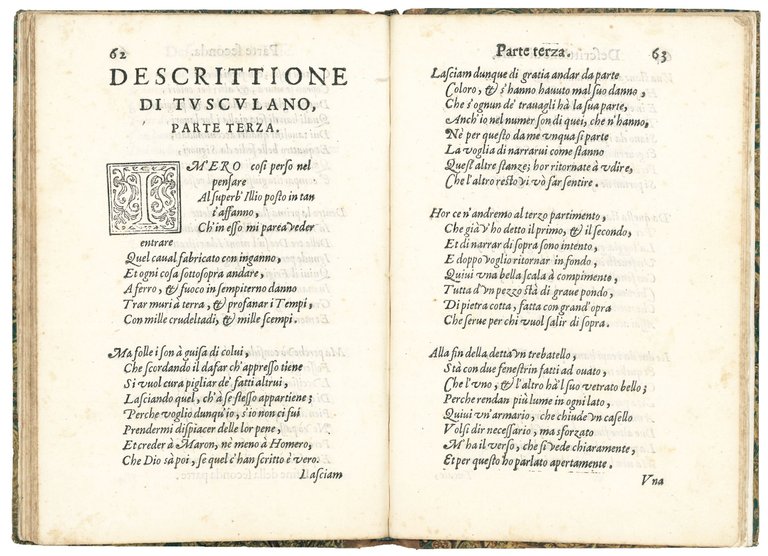 62
DESCRITTIONE
DI TVSCVLANO,
PARTE TERZA.
I M'ERO così perso nel
pensare
Al superb'Illio posto in tan
t'affanno,
Ch'in esso mi parea veder
entrare
Quel caual fabricato con inganno,
Et ogni cosa sottosopra andare,
A ferro, & fuoco in sempiterno danno
Trar muri à terra, & profanar i Tempi,
Con mille crudeltadi, & mille scempi.
Ma folle i son à guisa di colui,
Che scordando il dafar ch'appresso tiene
Si vuol cura pigliar de' fatti altrui,
Lasciando quel, ch'à se stesso appartiene;
Perche voglio dunqu'io, s'io non ci fui
Prendermi dispiacer delle lor pene,
Et creder à Maron, nè meno à Homero,
Che Dio sà poi, se quel c'han scritto è vero.
Lasciam
Parte terza. 63
Lasciam dunque di gratia andar da parte
Coloro, & s'hanno hauuto mal suo danno,
Che s'ognun de' trauagli hà la sua parte,
Anch'io nel numer son di quei, che n'hanno,
Nè per questo da me vnqua si parte
La voglia di narrarui come stanno
Quest'altre stanze; hor ritornate à vdire,
Che l'altro resto vi vò far sentire.
Hor ce n'andremo al terzo partimento,
Che già v'ho detto il primo, & il secondo,
Et di narrar di sopra sono intento,
E doppo voglio ritornar in fondo,
Quiui vna bella scala à compimento,
Tutta d'vn pezzo stà di graue pondo,
Di pietra cotta, fatta con grand'opra
Che serue per chi vuol salir di sopra.
Alla fin della detta vn trebatello,
Stà con due fenestrin fatti ad ouato,
Che l'vno, & l'altro hà l suo vetrato bello;
Perche rendan più lume in ogni lato,
Quiui vn'armario, che chiude vn casello
Volsi dir necessario, ma sforzato
M'ha il verso, che si vede chiaramente,
Et per questo ho parlato apertamente.
Vna